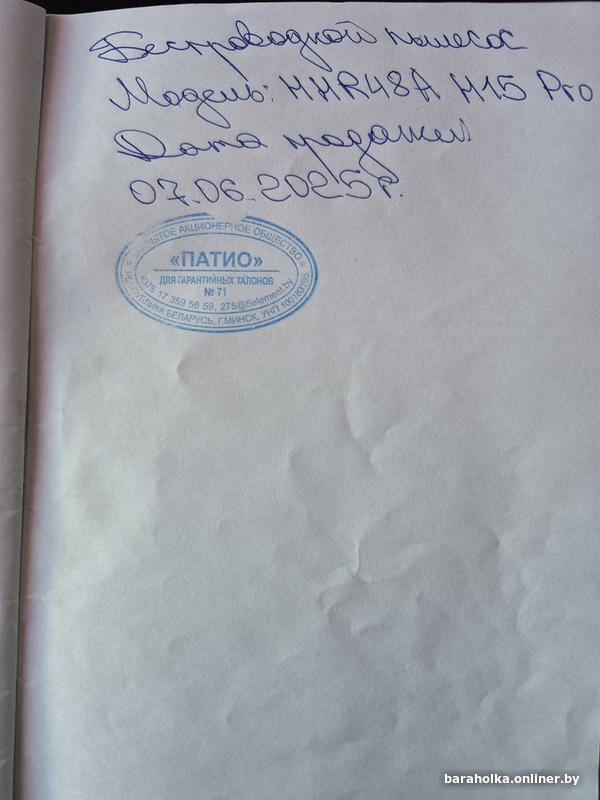 Беспроводной пылесос
Модель: HHR48A H15 Pro
Дата продажи
07.06.2025г.
ЗАКРЫТОЕ АКЦИОНЕРНОЕ ОБЩЕСТВО
«ПАТИО»
ДЛЯ ГАРАНТИЙНЫХ ТАЛОНОВ
№ 71
+375 17 359 59 59, 275@5element.by
РЕСПУБЛИКА БЕЛАРУСЬ, Г.МИНСК, УНП 100183195
baraholka.onliner.by